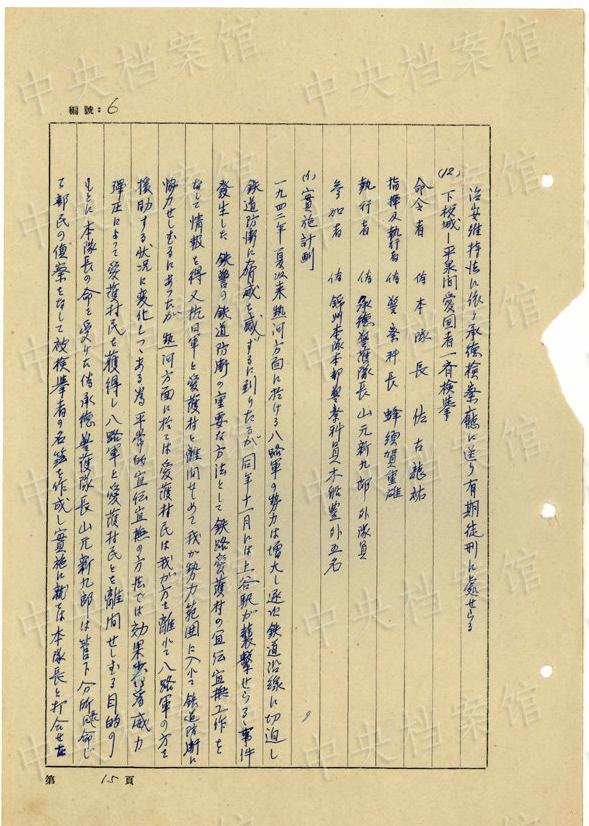 編號:6
治安維持法に依り承德検察庁に送り有期徒刑に處せらる
(12) 下板城—平泉間愛国者一斉検挙
命令者 偽本隊長 佐古龍祐
指揮及執行者 偽警察科長 蜂須賀重雄
執行者 偽承德警護隊長山元新九郎外隊員
参加者 偽錦州本隊本部警務科員 外五名
(1) 實施計劃
一九四二年夏以来熱河方面に於ける八路軍の勢力は增大し逐次鉄道沿線に切迫し
鉄道防衛に脅威を感ずるに到りたるが同年十一月には上谷駅が襲撃せらる事件
發生した 鉄警の鉄道防衛の重要な方法として鉄路愛護村の宣伝宣撫工作を
なし情報を得又抗日軍と愛護村と離間せしめて我が勢力範囲に入れて鉄道防衛に
協力せしむるにあったが 熱河方面に於ては愛護村民は我が方を離れて八路軍の方を
援助する状況に変化しつゝある為平常的宣伝宣撫の方法では効果少い為威力
彈圧によって愛護村民を獲得し八路軍と愛護村民とを離間せしむる目的の
もとに本隊長の命を受けた偽承德警護隊長山元新九郎は管下分所に命じ
て部民の偵察をなして被検挙者の名簿を作成し實施に就ては本隊長と打合せた
第 15 頁
中央档案馆